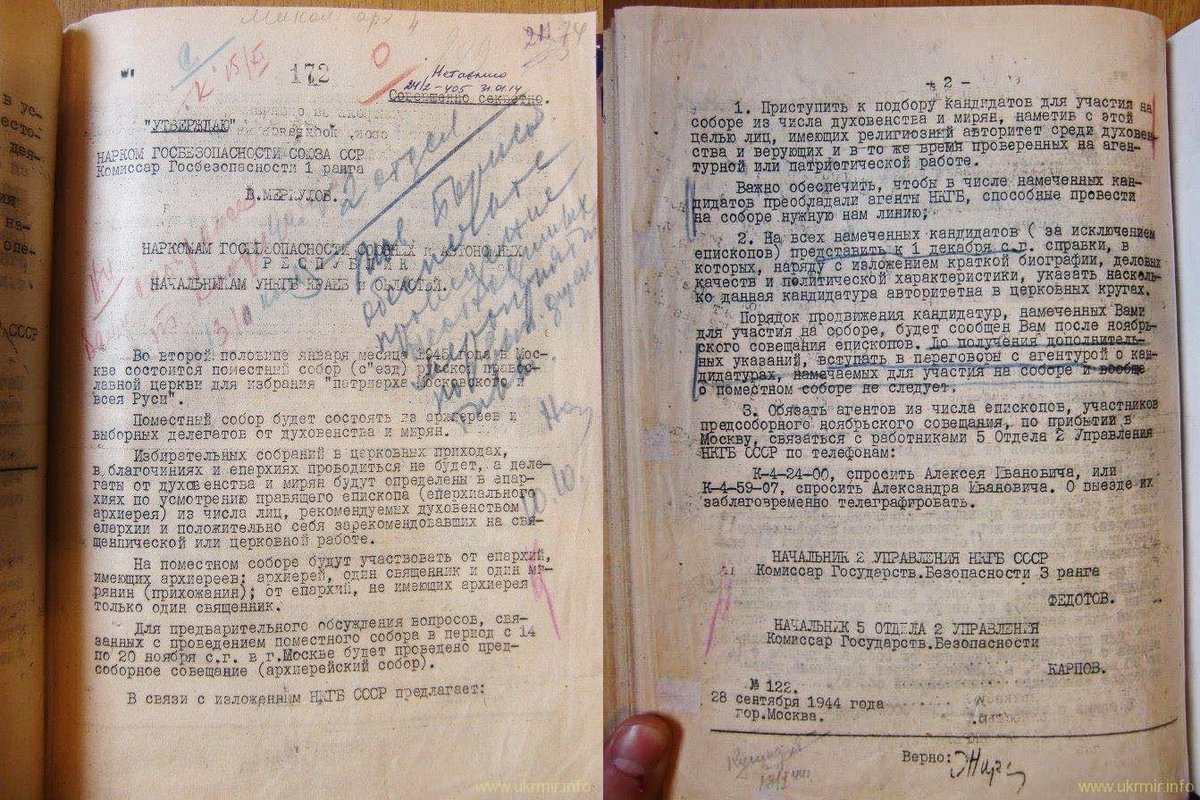 172
Совершенно секретно.
"УТВЕРЖДАЮ"
НАРКОМ ГОСБЕЗОПАСНОСТИ СОЮЗА ССР
Комиссар Госбезопасности 1 ранга
В.МЕРКУЛОВ.
НАРКОМАМ ГОСБЕЗОПАСНОСТИ СОЮЗНЫХ И АВТОНОМНЫХ
РЕСПУБЛИК
НАЧАЛЬНИКАМ УНКГБ КРАЕВ И ОБЛАСТЕЙ.
Во второй половине января месяца 1945 года в Мос-
кве состоится поместный собор (с"езд) русской право-
лавной церкви для избрания "патриарха Московского и
всея Руси".
Поместный собор будет состоять из архиереев и
выборных делегатов от духовенства и мирян.
Избирательных собраний в церковных приходах,
в благочиниях и епархиях проводиться не будет, а деле-
гаты от духовенства и мирян будут определены в епар-
хиях по усмотрению правящего епископа (епархиального
архиерея) из числа лиц, рекомендуемых духовенством
епархии и положительно себя зарекомендовавших на свя-
щеннической или церковной работе.
На поместном соборе будут участвовать от епархий,
имеющих архиереев: архиерей, один священник и один ми-
рянин (прихожанин); от епархий, не имеющих архиерея
только один священник.
Для предварительного обсуждения вопросов, свя-
занных с проведением поместного собора в период с 14
по 20 ноября с.г. в г.Москве будет проведено пред-
соборное совещание (архиерейский собор).
В связи с изложенным НКГБ СССР предлагает:
www.ukrmir.info
- 2 -
1. Приступить к подбору кандидатов для участия на
соборе из числа духовенства и мирян, наметив с этой
целью лиц, имеющих религиозный авторитет среди духовен-
ства и верующих и в то же время проверенных на аген-
турной или патриотической работе.
Важно обеспечить, чтобы в числе намеченных кан-
дидатов преобладали агенты НКГБ, способные провести
на соборе нужную нам линию;
2. На всех намеченных кандидатов ( за исключением
епископов) представить к 1 декабря с.г. справки, в
которых, наряду с изложением краткой биографии, деловых
качеств и политической характеристики, указать насколь-
ко данная кандидатура авторитетна в церковных кругах.
Порядок продвижения кандидатур, намеченных Вами
для участия на соборе, будет сообщен Вам после ноябрь-
ского совещания епископов. До получения дополнитель-
ных указаний, вступать в переговоры с агентурой о кан-
дидатурах, намечаемых для участия на соборе и вообще
о поместном соборе не следует.
3. Обязать агентов из числа епископов, участников
предсоборного ноябрьского совещания, по прибытии в
Москву, связаться с работниками 5 Отдела 2 Управления
НКГБ СССР по телефонам:
К-4-24-00, спросить Алексея Ивановича, или
К-4-59-07, спросить Александра Ивановича. О выезде их
заблаговременно телеграфировать.
НАЧАЛЬНИК 2 УПРАВЛЕНИЯ НКГБ СССР
Комиссар Государств.Безопасности 3 ранга
ФЕДОТОВ.
НАЧАЛЬНИК 5 ОТДЕЛА 2 УПРАВЛЕНИЯ
Комиссар Государств.Безопасности
КАРПОВ.
№ 122.
28 сентября 1944 года
гор.Москва.
Верно:
www.ukrmir.info